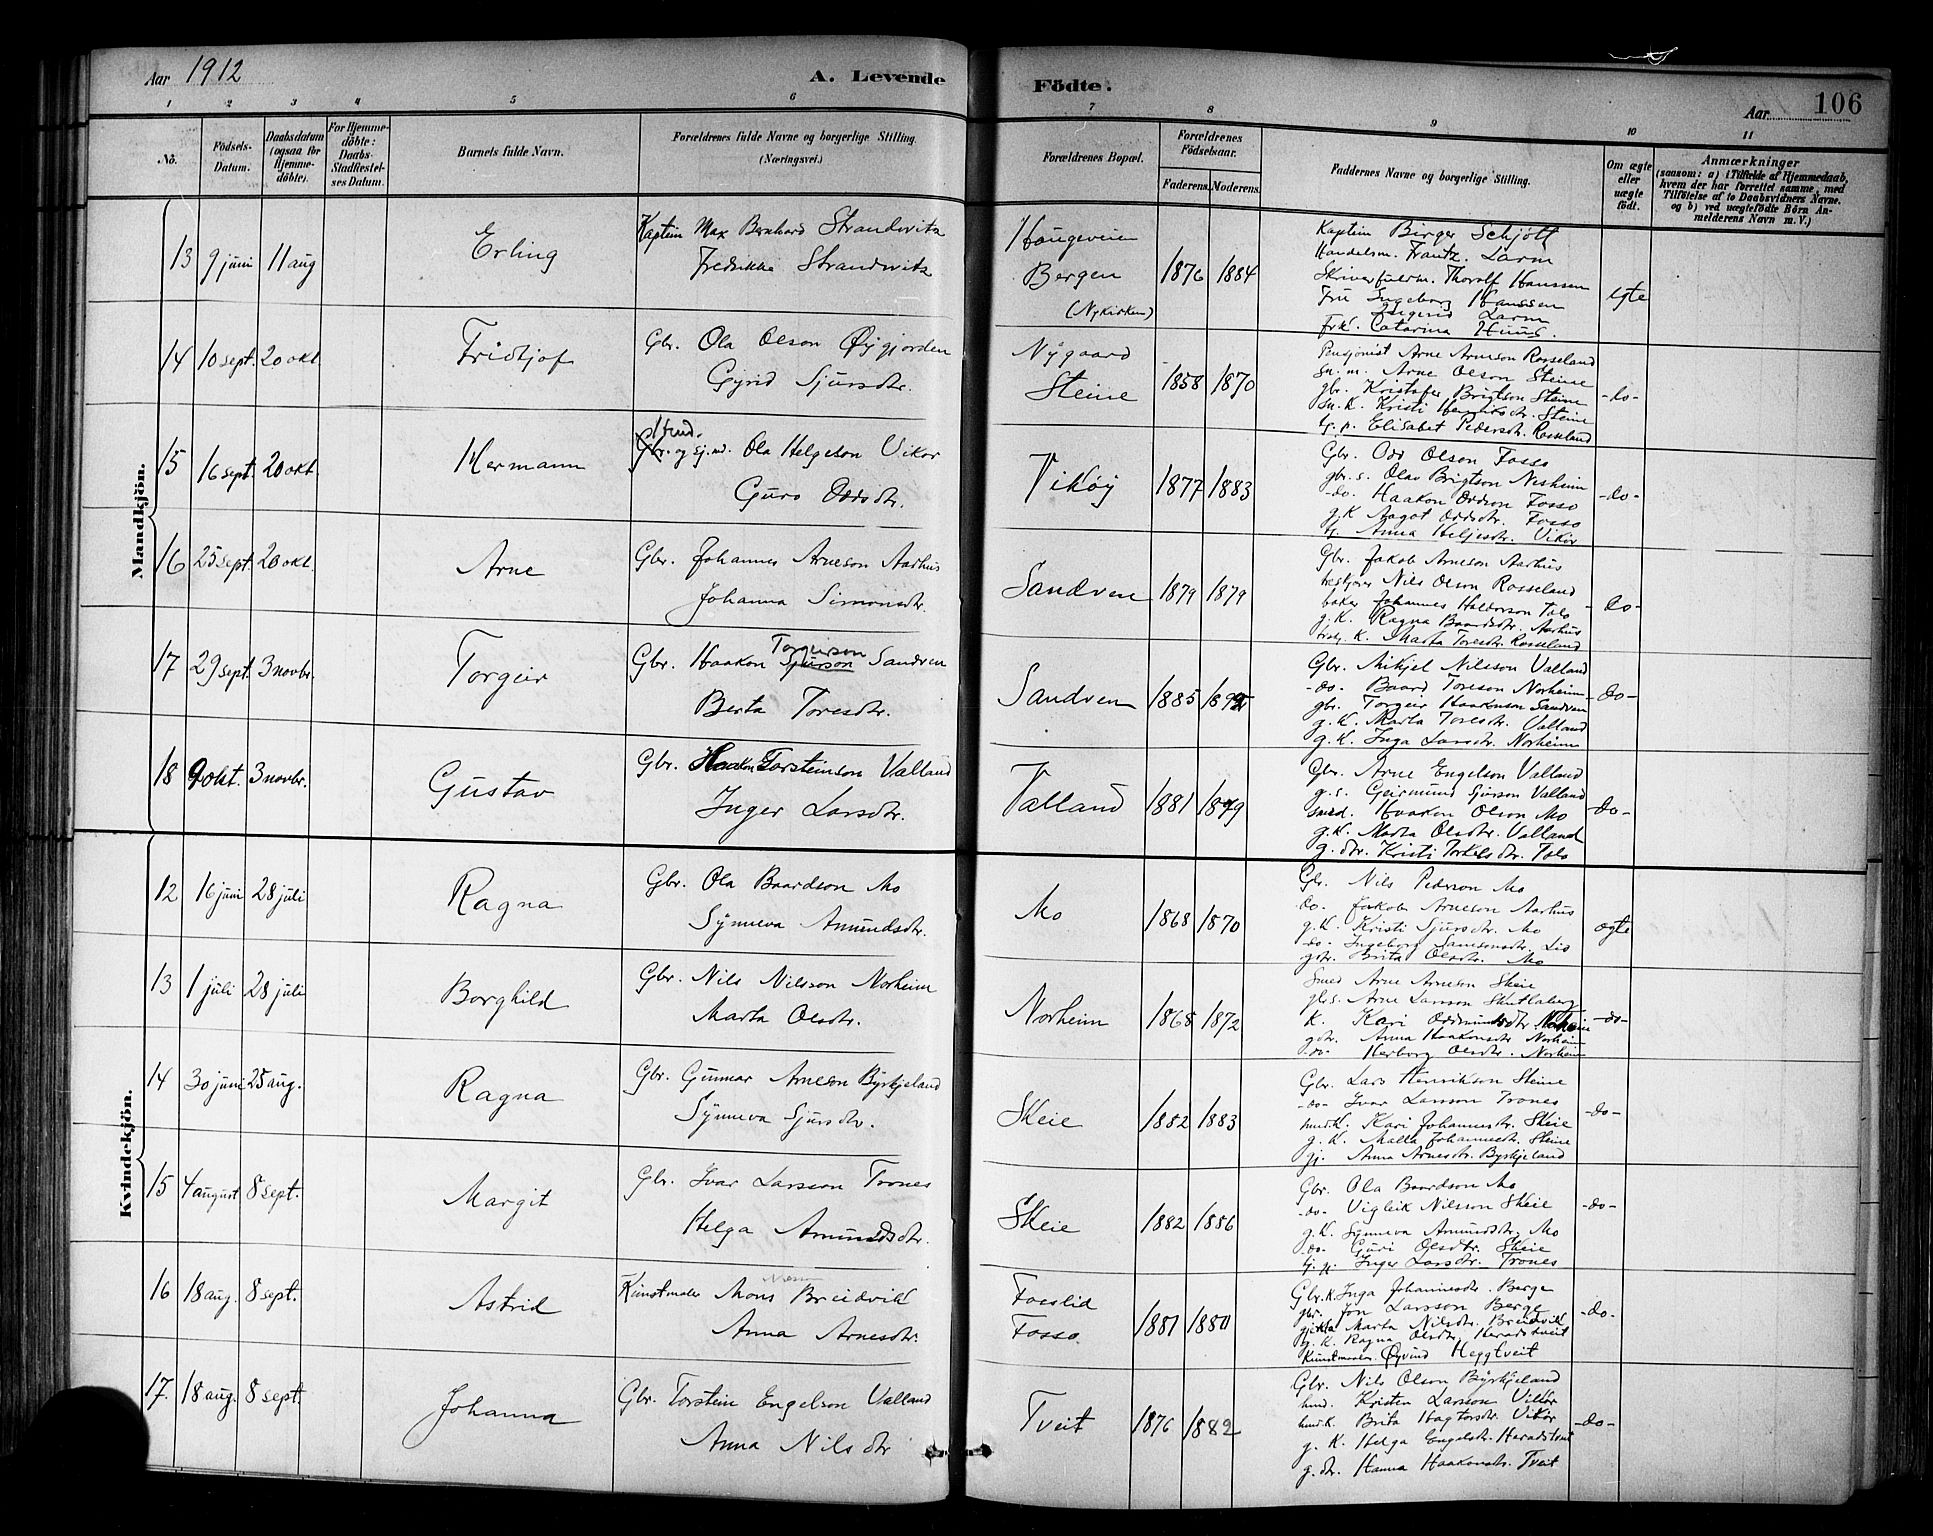 Aar 1912
A. Levende Födte.
Aar
106
1 2 3 4 5 6 7 8 9 10 11
No.
Födsels-Datum.
Daabsdatum (ogsaa for Hjemme-döbte).
For Hjemme-döbte: Daabs-Stadfæstel-ses Datum.
Barnets fulde Navn.
Forældrenes fulde Navne og borgerlige Stilling.
(Næringsvei.)
Forældrenes Bopæl.
Forældrenes Födselsaar.
Faderens. Moderens.
Faddernes Navne og borgerlige Stilling.
Om ægte eller uægte født.
Anmærkninger
(saasom: a) i Tilfælde af Hjemmedaab,
hvem der har forrettet samme, med
Tilföielse af to Daabsvidners Navne,
og b) ved uægtefödte Börn An-
melderens Navn m. V.)
Mandkjön.
13 9 juni 11 aug Erling Kaptein Max Bernhard Strandvitz
Fredrikke Strandvitz
Haugeveien
Bergen
(Nykirken)
1876 1884
Kaptein Birger Schjött
Handelsm. Frantz Larm
Thorolf Hanssen
Fru Ingeborg Hanssen
Ingerid Larm
frk. Catarina Huus.
egte
14 10 sept. 20 okt Fridtjof Gbr. Ola Olson Øygjorden
Gyrid Sjursdtr.
Nygaard
Steine
1858 1870
Pensjonist Arne Arneson Rosseland
Arne Olson Steine
gbr. Kristofer Brigtson Steine
Kristi Henriksdtr. Steine
Elisabet Pedersdtr. Rosseland
-do-
15 16 sept. 20 okt. Hermann Hmd.
Gbr. og sj.md. Ola Helgeson Vikør
Guro Oddsdtr.
Vikøy
1877 1883
Gbr. Odd Olson Fosso
gbr.s. Olav Brigtson Nesheim
-do- Haakon Oddson Fosso
g.k Aagot Oddsdtr. Fosso
Anna Heljesdtr. Vikør
-do-
16 25 sept. 20 okt. Arne Gbr. Johannes Arneson Aarhus
Johanna Simonsdtr.
Sandven
1879 1879
Gbr. Jakob Arneson Aarhus
Nils Olson Rosseland
baker Johannes Haldorson Tolo
g.k. Ragna Baardsdtr. Aarhus
Marta Toresdtr. Rosseland
-do-
17 29 sept. 3 novbr. Torgeir Gbr. Haakon Sjurson Torgeirson Sandven
Berta Toresdtr.
Sandven
1885
Gbr. Mikjel Nilsson Valland
-do- Baard Toreson Norheim
gbr. Torgeir Haakonson Sandven
g.k. Marta Toresdtr. Valland
g.k. Inga Larsdtr. Norheim
-do-
18 9 okt. 3 novbr. Gustav Gbr. Haakon Torsteinson Valland
Inger Larsdtr.
Valland
1881 1879
Gbr. Arne Engelson Valland
g.s. Geirmund Sjurson Valland
smed. Haakon Olson Mo
g.k. Marta Olsdtr. Valland
g.dtr. Kristi Torkelsdtr. Tolo
-do-
Kvindekjön.
12 16 juni 28 juli Ragna Gbr. Ola Baardson Mo
Synneva Amundsdtr.
Mo
1868 1870
Gbr. Nils Pederson Mo
-do- Jakob Arneson Aarhus
g.k. Kristi Sjursdtr. Mo
-do- Ingeborg Samsonsdtr. Lio
gdtr. Brita Olsdtr. Mo
egte
13 1 juli 28 juli Borghild Gbr. Nils Nilsson Norheim
Marta Olsdtr.
Norheim
1868 1872
Smed Arne Arneson Skeie
gbs. Arne Larsson Skutlaberg
k. Kari Oddmundsdtr Norheim
gdtr. Anna Haakonsdtr Norheim
-do- Herborg Olsdtr. Norheim
-do-
14 30 juni 25 aug. Ragna Gbr. Gunnar Arneson Byrkjeland
Synneva Sjursdtr.
Skeie
1882 1883
Gbr. Lars Henrikson Steine
-do- Ivar Larsson Trones
hmd.k. Kari Johannesdtr. Skeie
g.k. Malla Johannesdtr. Steine
gj. Anna Arnesdtr. Byrkjeland
-do-
15 4 august 8 sept. Margit Gbr. Ivar Larsson Trones
Helga Amundsdtr.
Skeie
1882 1886
Gbr. Ola Baardson Mo
-do- Vigleik Nilsson Skeie
g.k. Synneva Amundsdtr. Mo
-do- Guri Olsdtr. Skeie
Inger Larsdtr. Trones
-do-
16 18 aug. 8 sept. Astrid Kunstmaler Mons Breidvik
Anna Arnesdtr.
Fosslid
Fosso.
1881 1880
Gbr.k. Inga Johannesdtr. Berge
gbr. Jon Larsson Berge
Marta Nilsdtr. Breidvik
g.k. Ragna Olsdtr. Heradstveit
Kunstmaler Øyvind Heggtveit
-do-
17. 18 aug. 8 sept. Johanna Gbr. Torstein Engelson Valland
Anna Nilsdtr
Tveit
1876 1882
Gbr. Nils Olson Byrkjeland
hmd. Kristen Larsson Vikør
hmd.k. Brita Hagtorsdtr. Vikør
g.k. Helga Engelsdtr. Heradstveit
g.dtr. Hanna Haakonsdtr. Tveit
-do-